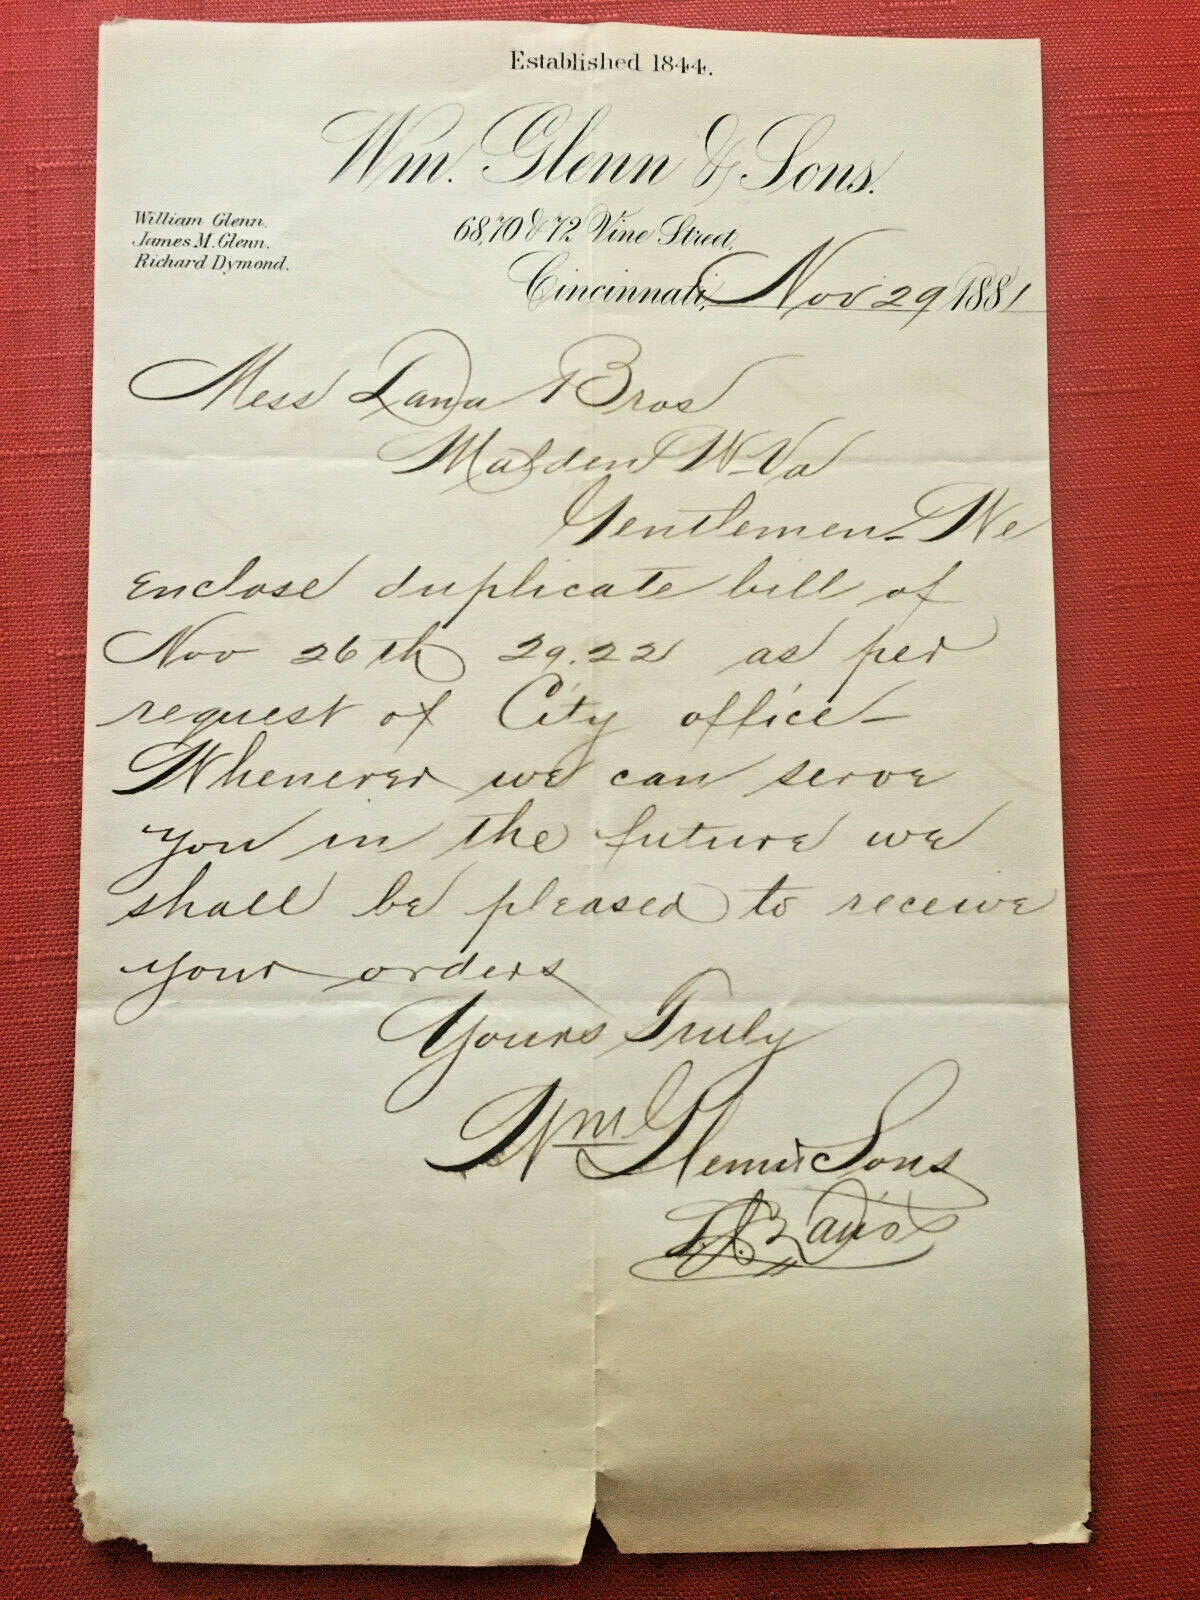 Established 1844.
Wm. Glenn & Sons.
William Glenn.
James M. Glenn.
Richard Dymond.
68, 70 & 72 Vine Street,
Cincinnati, Nov 29 1881
Mess Dana Bros
Malden W-Va
Gentlemen- We
enclose duplicate bill of
Nov 26th 29.22 as per
request of City office-
Whenever we can serve
you in the future we
shall be pleased to receive
your orders
Yours Truly
Wm Glenn & Sons